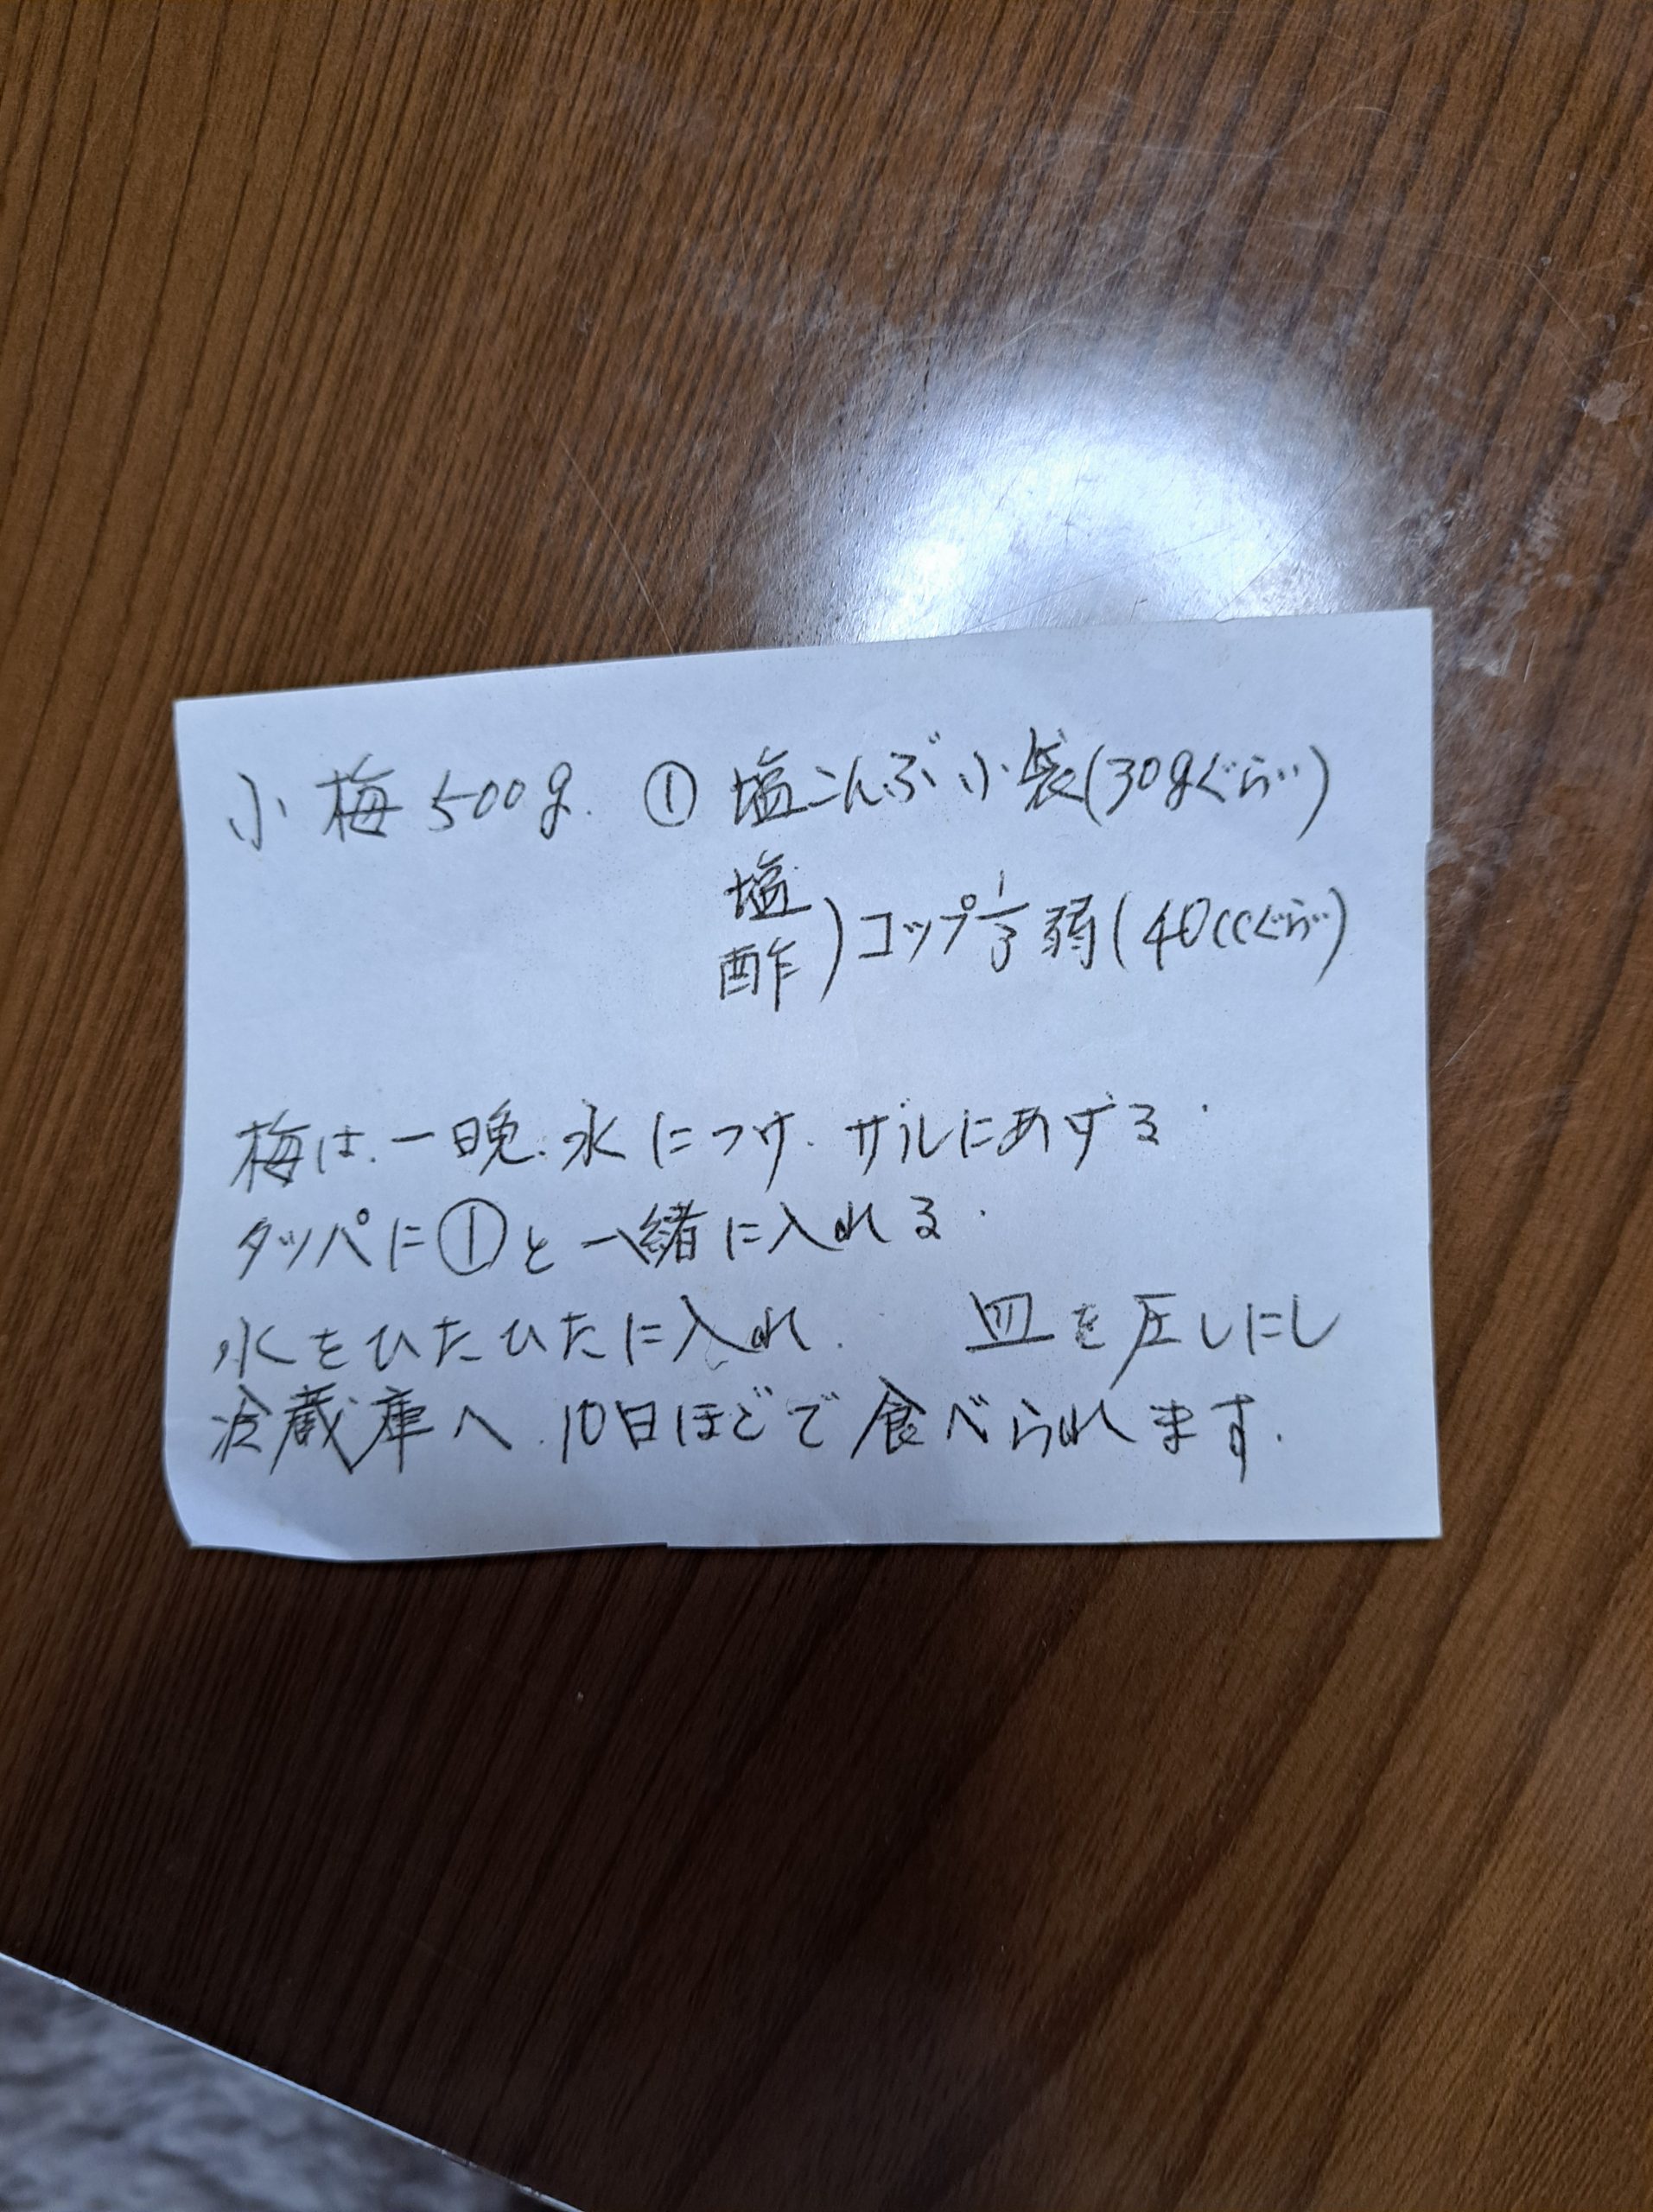 小梅500g. ① 塩こんぶ小袋(30gぐらい)
塩
酢)コップ1/3弱(40ccぐらい)
梅は、一晩、水につけ、ザルにあげる.
タッパに①と一緒に入れる.
水をひたひたに入れ. 皿を圧しにし
冷蔵庫へ.10日ほどで食べられます.